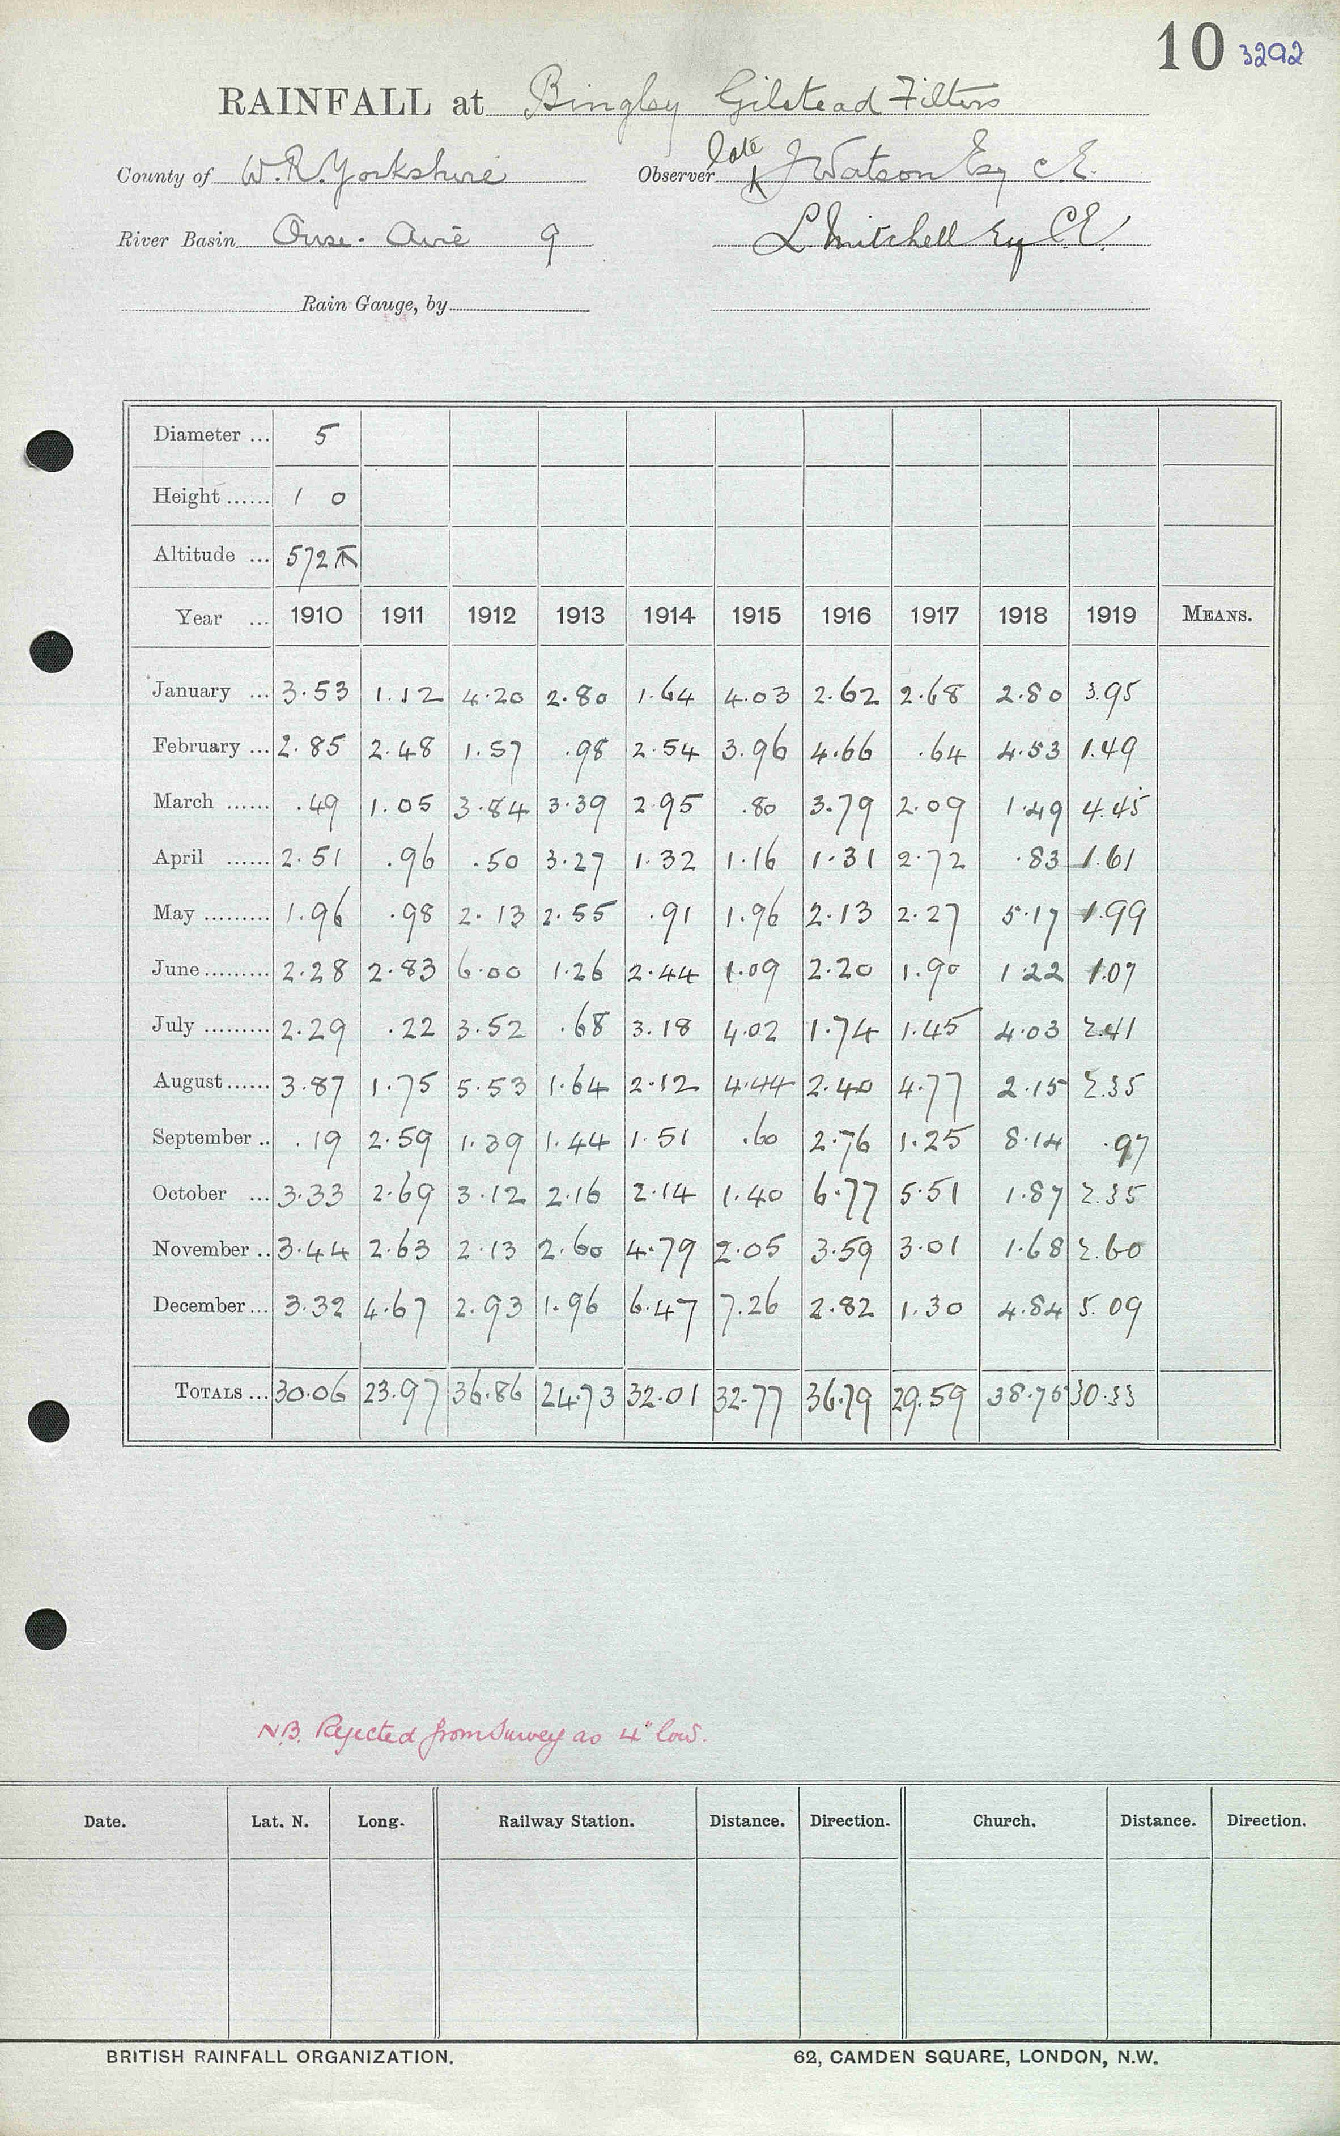 10 3292
RAINFALL at Bingley Gilstead Filters
County of W.R. Yorkshire Observer late J Watson Esq C.E.
River Basin Ouse. Aire 9 L. Mitchell Esq C.E.
Rain Gauge, by
Diameter ... 5
Height ...... 1 0
Altitude ... 572
Year ... 1910 1911 1912 1913 1914 1915 1916 1917 1918 1919 MEANS.
January ... 3.53 1.12 4.20 2.80 1.64 4.03 2.62 2.68 2.80 3.95
February ... 2.85 2.48 1.57 .98 2.54 3.96 4.66 .64 4.53 1.49
March ...... .49 1.05 3.84 3.39 2.95 .80 3.79 2.09 1.49 4.45
April ...... 2.51 .96 .50 3.27 1.32 1.16 1.31 2.72 .83 1.61
May ......... 1.96 .98 2.13 2.55 .91 1.96 2.13 2.27 5.17 1.99
June ......... 2.28 2.83 6.00 1.26 2.44 1.09 2.20 1.90 1 22 1.07
July ......... 2.29 .22 3.52 .68 3.18 4.02 1.74 1.45 4.03 2.41
August ...... 3.87 1.75 5.53 1.64 2.12 4.44 2.40 4.77 2.15 2.35
September .. .19 2.59 1.39 1.44 1.51 .60 2.76 1.25 8.14 .97
October ... 3.33 2.69 3.12 2.16 2.14 1.40 6.77 5.51 1.87 2.35
November .. 3.44 2.63 2.13 2.60 4.79 2.05 3.59 3.01 1.68 2.60
December ... 3.32 4.67 2.93 1.96 6.47 7.26 2.82 1.30 4.84 5.09
TOTALS ... 30.06 23.97 36.86 24.73 32.01 32.77 36.79 29.59 38.75 30.33
N.B. Rejected from Survey as 4" low.
Date. Lat. N. Long. Railway Station. Distance. Direction. Church. Distance. Direction.
BRITISH RAINFALL ORGANIZATION. 62, CAMDEN SQUARE, LONDON, N.W.